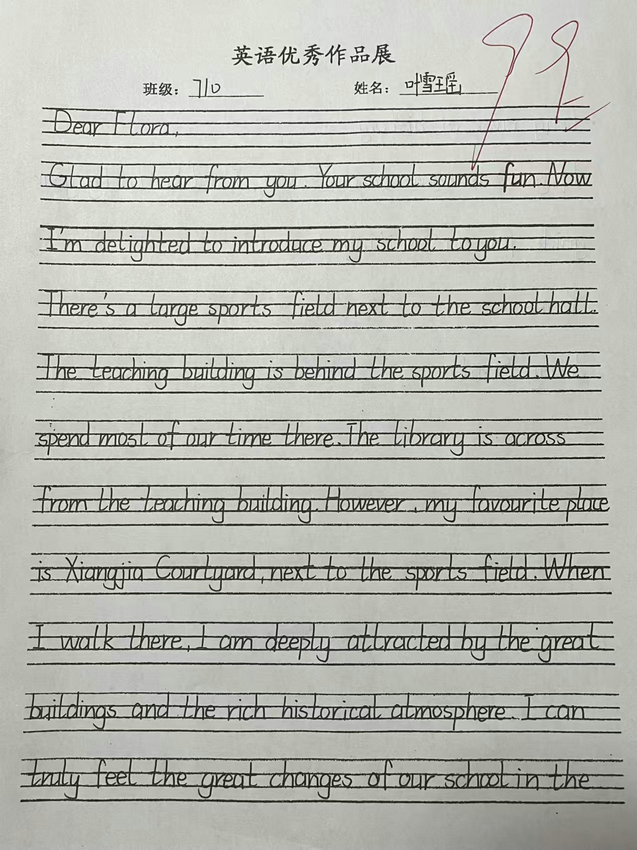 英语优秀作品展
班级：710 姓名：叶雪瑶
Dear Flora,
Glad to hear from you. Your school sounds fun. Now
I'm delighted to introduce my school to you.
There's a large sports field next to the school hall.
The teaching building is behind the sports field. We
spend most of our time there. The library is across
from the teaching building. However, my favourite place
is Xiangjia Courtyard, next to the sports field. When
I walk there, I am deeply attracted by the great
buildings and the rich historical atmosphere. I can
truly feel the great changes of our school in the